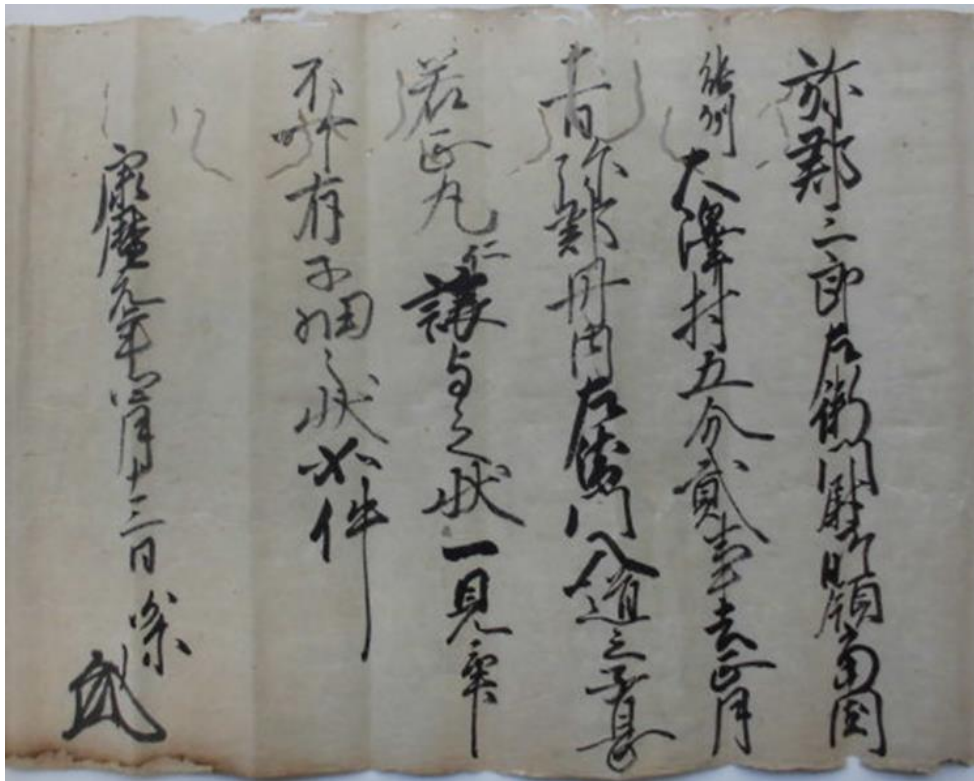 弥郡三郎左衛門尉領當国
能州大澤村五分貳事去正月
弥郡丹内左衛門入道之子息
若正丸仁譲与之状一見畢
不有子細之状如件
康暦元年四月十三日